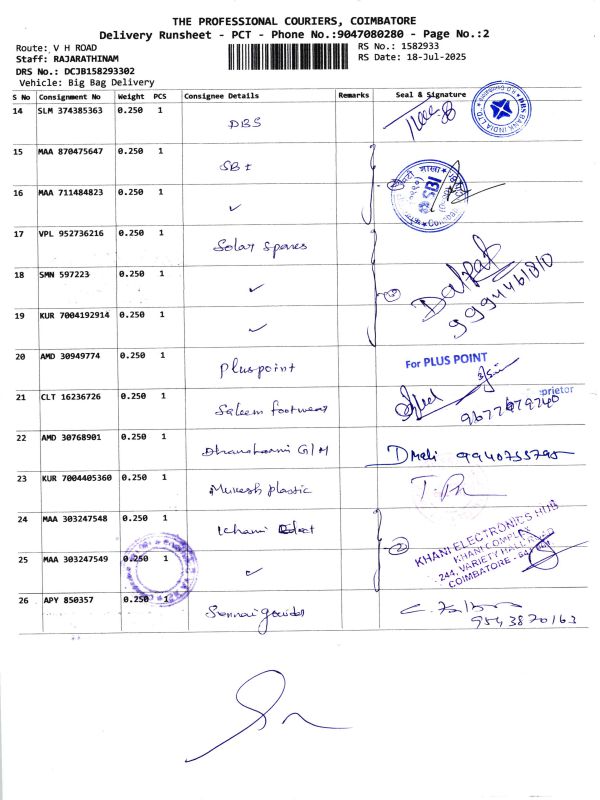 THE PROFESSIONAL COURIERS, COIMBATORE
Delivery Runsheet - PCT - Phone No.:9047080280 - Page No.:2
Route: V H ROAD
RS No.: 1582933
Staff: RAJARATHINAM
RS Date: 18-Jul-2025
DRS No.: DCJB158293302
Vehicle: Big Bag Delivery
S No Consignment No Weight PCS Consignee Details Remarks Seal & Signature
14 SLM 374385363 0.250 1 DBS
DBS BANK INDIA LTD.
15 MAA 870475647 0.250 1 SBI
SBI
16 MAA 711484823 0.250 1 ✓
17 VPL 952736216 0.250 1 Solar Spares
18 SMN 597223 0.250 1 ✓
Dalpat
9994461810
19 KUR 7004192914 0.250 1 ✓
20 AMD 30949774 0.250 1 Pluspoint
For PLUS POINT
21 CLT 16236726 0.250 1 Saleem footwear
prietor
22 AMD 30768901 0.250 1 G/M
9940755795
23 KUR 7004405360 0.250 1 Mukesh plastic
24 MAA 303247548 0.250 1 Khani
KHANI ELECTRONICS HUB
KHANI COMPLEX
244, VARIETY HALL
COIMBATORE -
25 MAA 303247549 0.250 1 ✓
26 APY 850357 0.250 1
9543870163